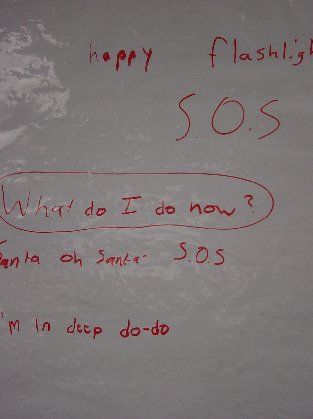 happy flashligh
S.O.S
What do I do now?
Santa oh Santa- S.O.S
I'm in deep do-do